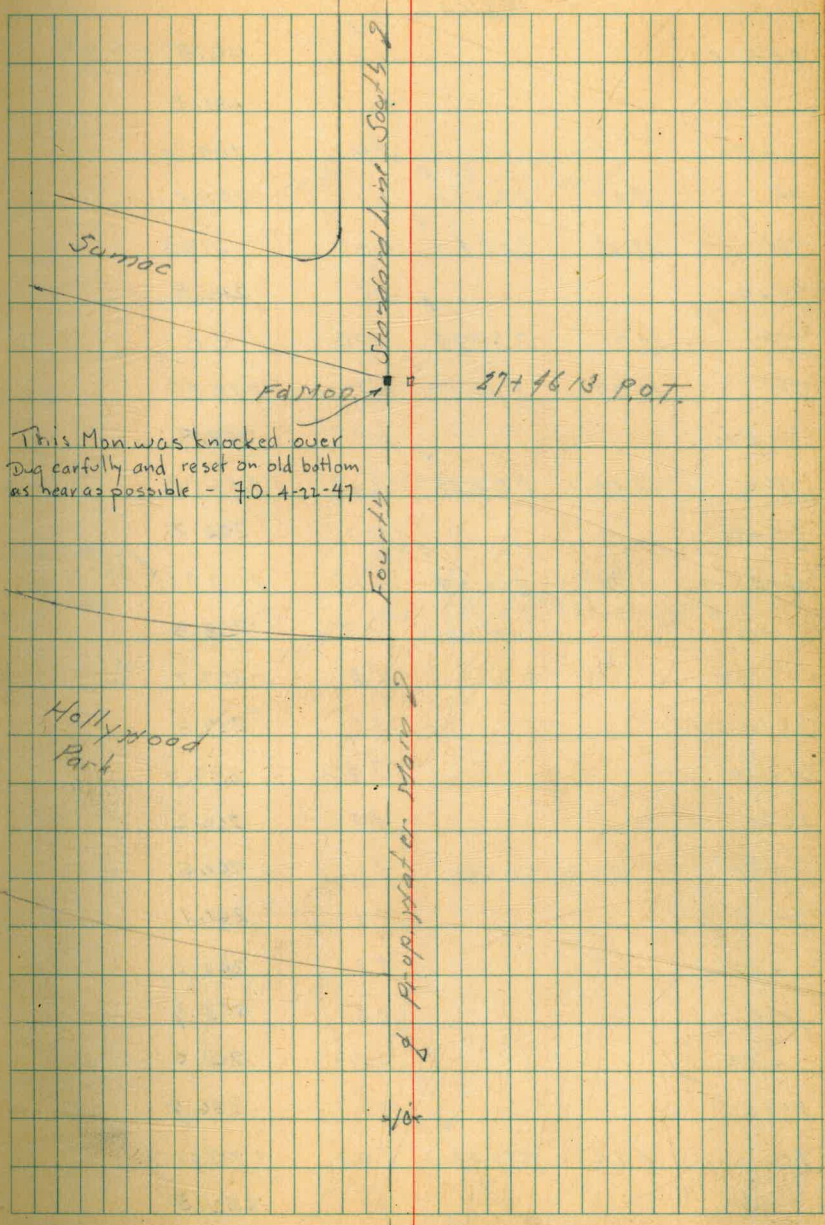 Standard Line South
Sumac
Fd Mon.
27+46.13 P.O.T.
This Mon. was knocked over
Dug carfully and reset on old bottom
as near as possible - F.O. 4-22-47
Fourth
Hollywood
Park
℄ Prop. Water Main
10'